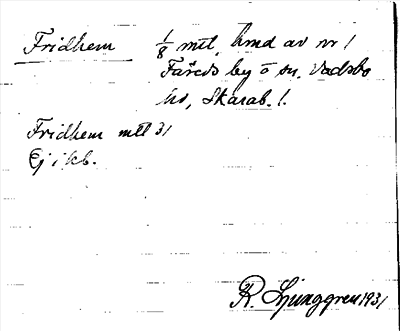 Fridhem 1/8 mtl, hmd av nr 1
Färeds by o sn, Vadsbo
hd, Skarab. l.
Fridhem mtl 31
Ej i kb.
R. Ljunggren 1931